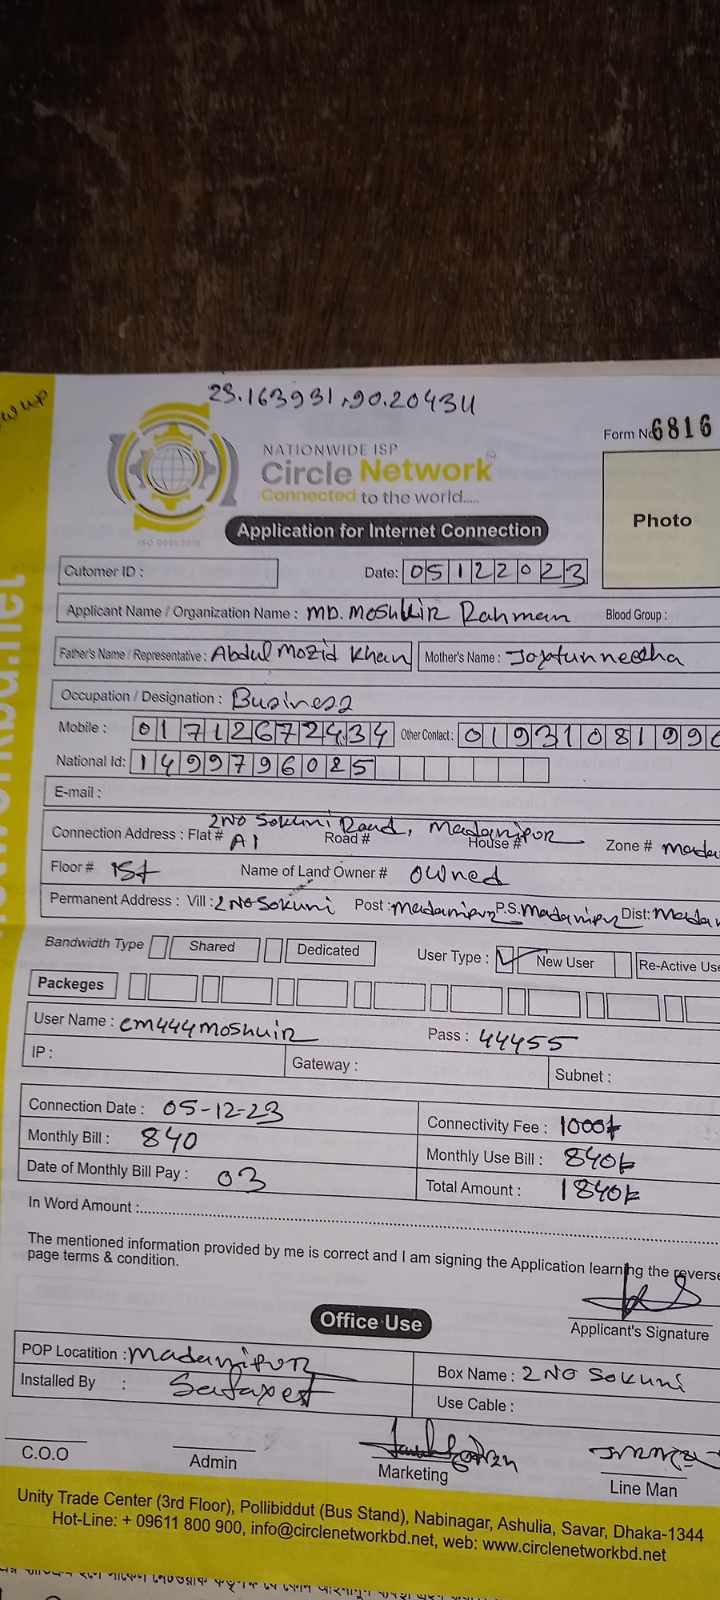 23.163931,90.20434
Form No 6816
NATIONWIDE ISP
Circle Network
Connected to the world.....
ISO 9001:2015
Application for Internet Connection
Photo
Cutomer ID :
Date: 05122023
Applicant Name / Organization Name : MD. Moshkir Rahman Blood Group :
Father's Name / Representative : Abdul Mozid Khan Mother's Name :
Occupation / Designation : Business
Mobile : 01712672434 Other Contact : 0193108199
National Id: 1499796025
E-mail :
2NO Sokuni Road, Madaripur
Connection Address : Flat # A1 Road # House # Zone # mada
Floor # 1st Name of Land Owner # owned
Permanent Address : Vill : 2 No Sokuni Post : Madaripur P.S. Madaripur Dist: Madar
Bandwidth Type Shared Dedicated User Type : New User Re-Active Use
Packeges
User Name : cm444moshuir Pass : 44455
IP : Gateway : Subnet :
Connection Date : 05-12-23 Connectivity Fee : 1000৳
Monthly Bill : 840 Monthly Use Bill : 840৳
Date of Monthly Bill Pay : 03 Total Amount : 1840৳
In Word Amount :
The mentioned information provided by me is correct and I am signing the Application learning the reverse
page terms & condition.
Applicant's Signature
Office Use
POP Locatition : Madaripur Box Name : 2 NO Sokuni
Installed By : Use Cable :
C.O.O Admin Marketing Line Man
Unity Trade Center (3rd Floor), Pollibiddut (Bus Stand), Nabinagar, Ashulia, Savar, Dhaka-1344
Hot-Line: + 09611 800 900, info@circlenetworkbd.net, web: www.circlenetworkbd.net